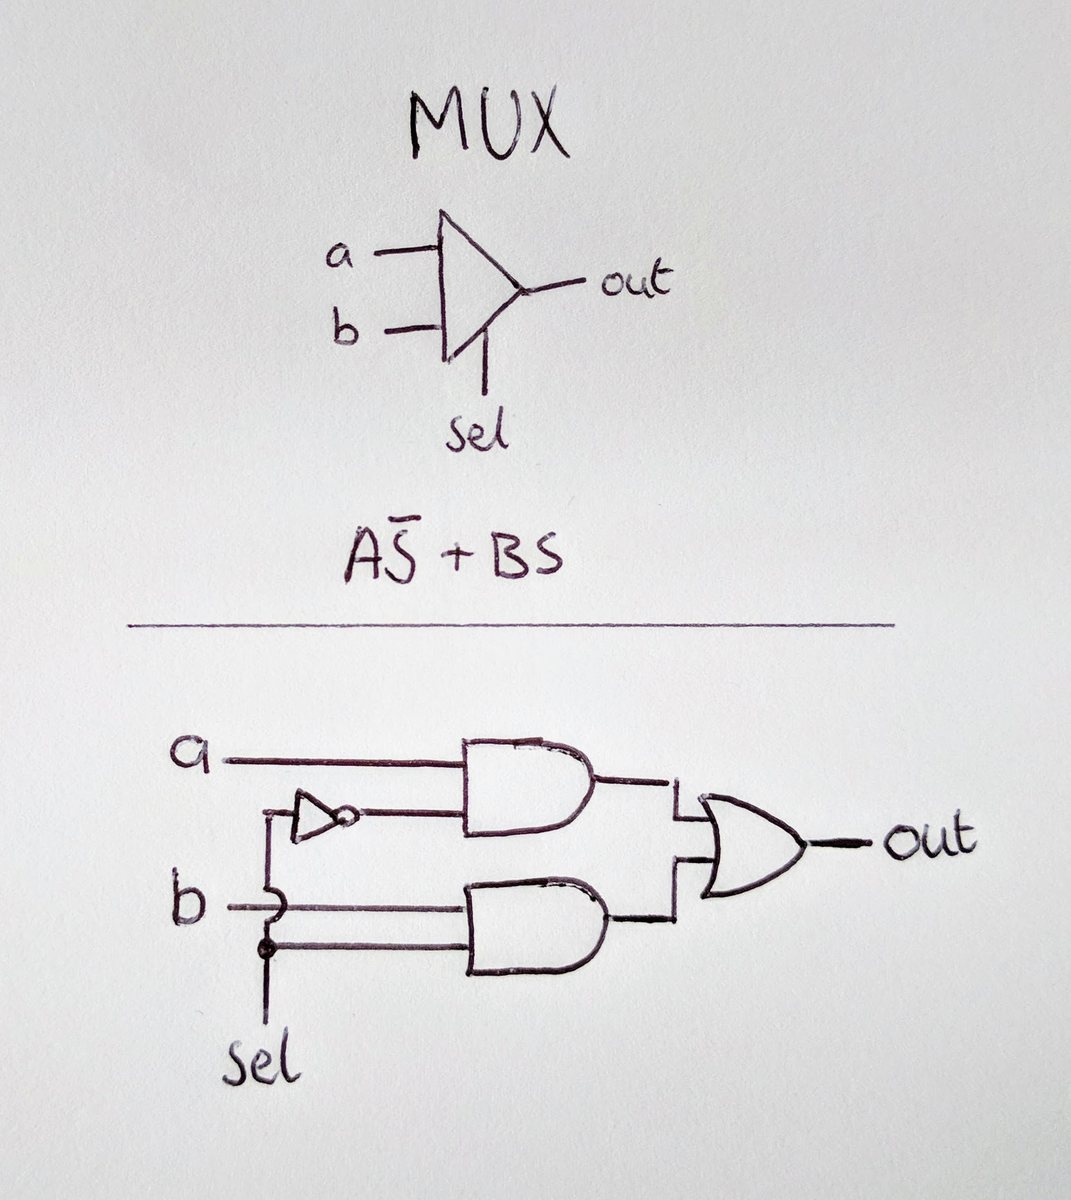 MUX
a
out
b
sel
AS̅ + BS
a
out
b
sel